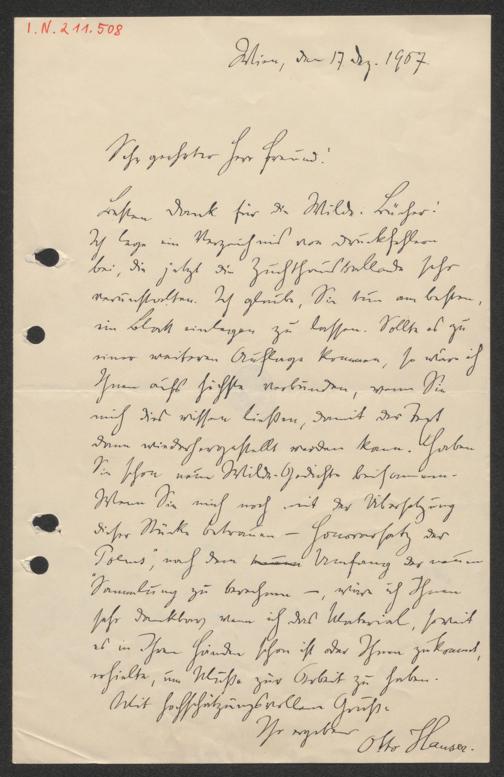 I.N. 211.508
Wien, den 17 Dez. 1907
Sehr geehrter Herr Freund!
Besten Dank für die Wilde-Bücher!
Ich lege ein Verzeichnis von Druckfehlern
bei, die jetzt die Zuchthausballade sehr
verunstalten. Ich glaube, Sie tun am besten,
ein Blatt einlegen zu lassen. Sollte es zu
einer weiteren Auflage kommen, so wäre ich
Ihnen aufs höchste verbunden, wenn Sie
mich dies wissen ließen, damit der Text
dann wiederhergestellt werden kann. Haben
Sie schon neue Wilde-Gedichte beisammen.
Wenn Sie mich noch mit der Übersetzung
dieser Stücke betrauen – Honorarsatz der
"Poems", nach dem Umfang der neuen
Sammlung zu berechnen –, wäre ich Ihnen
sehr dankbar, wenn ich das Material, soweit
es in Ihren Händen schon ist oder Ihnen zukommt,
erhielte, um Muße zur Arbeit zu haben.
Mit hochschätzungsvollem Gruße
Ihr ergebener
Otto Hauser.